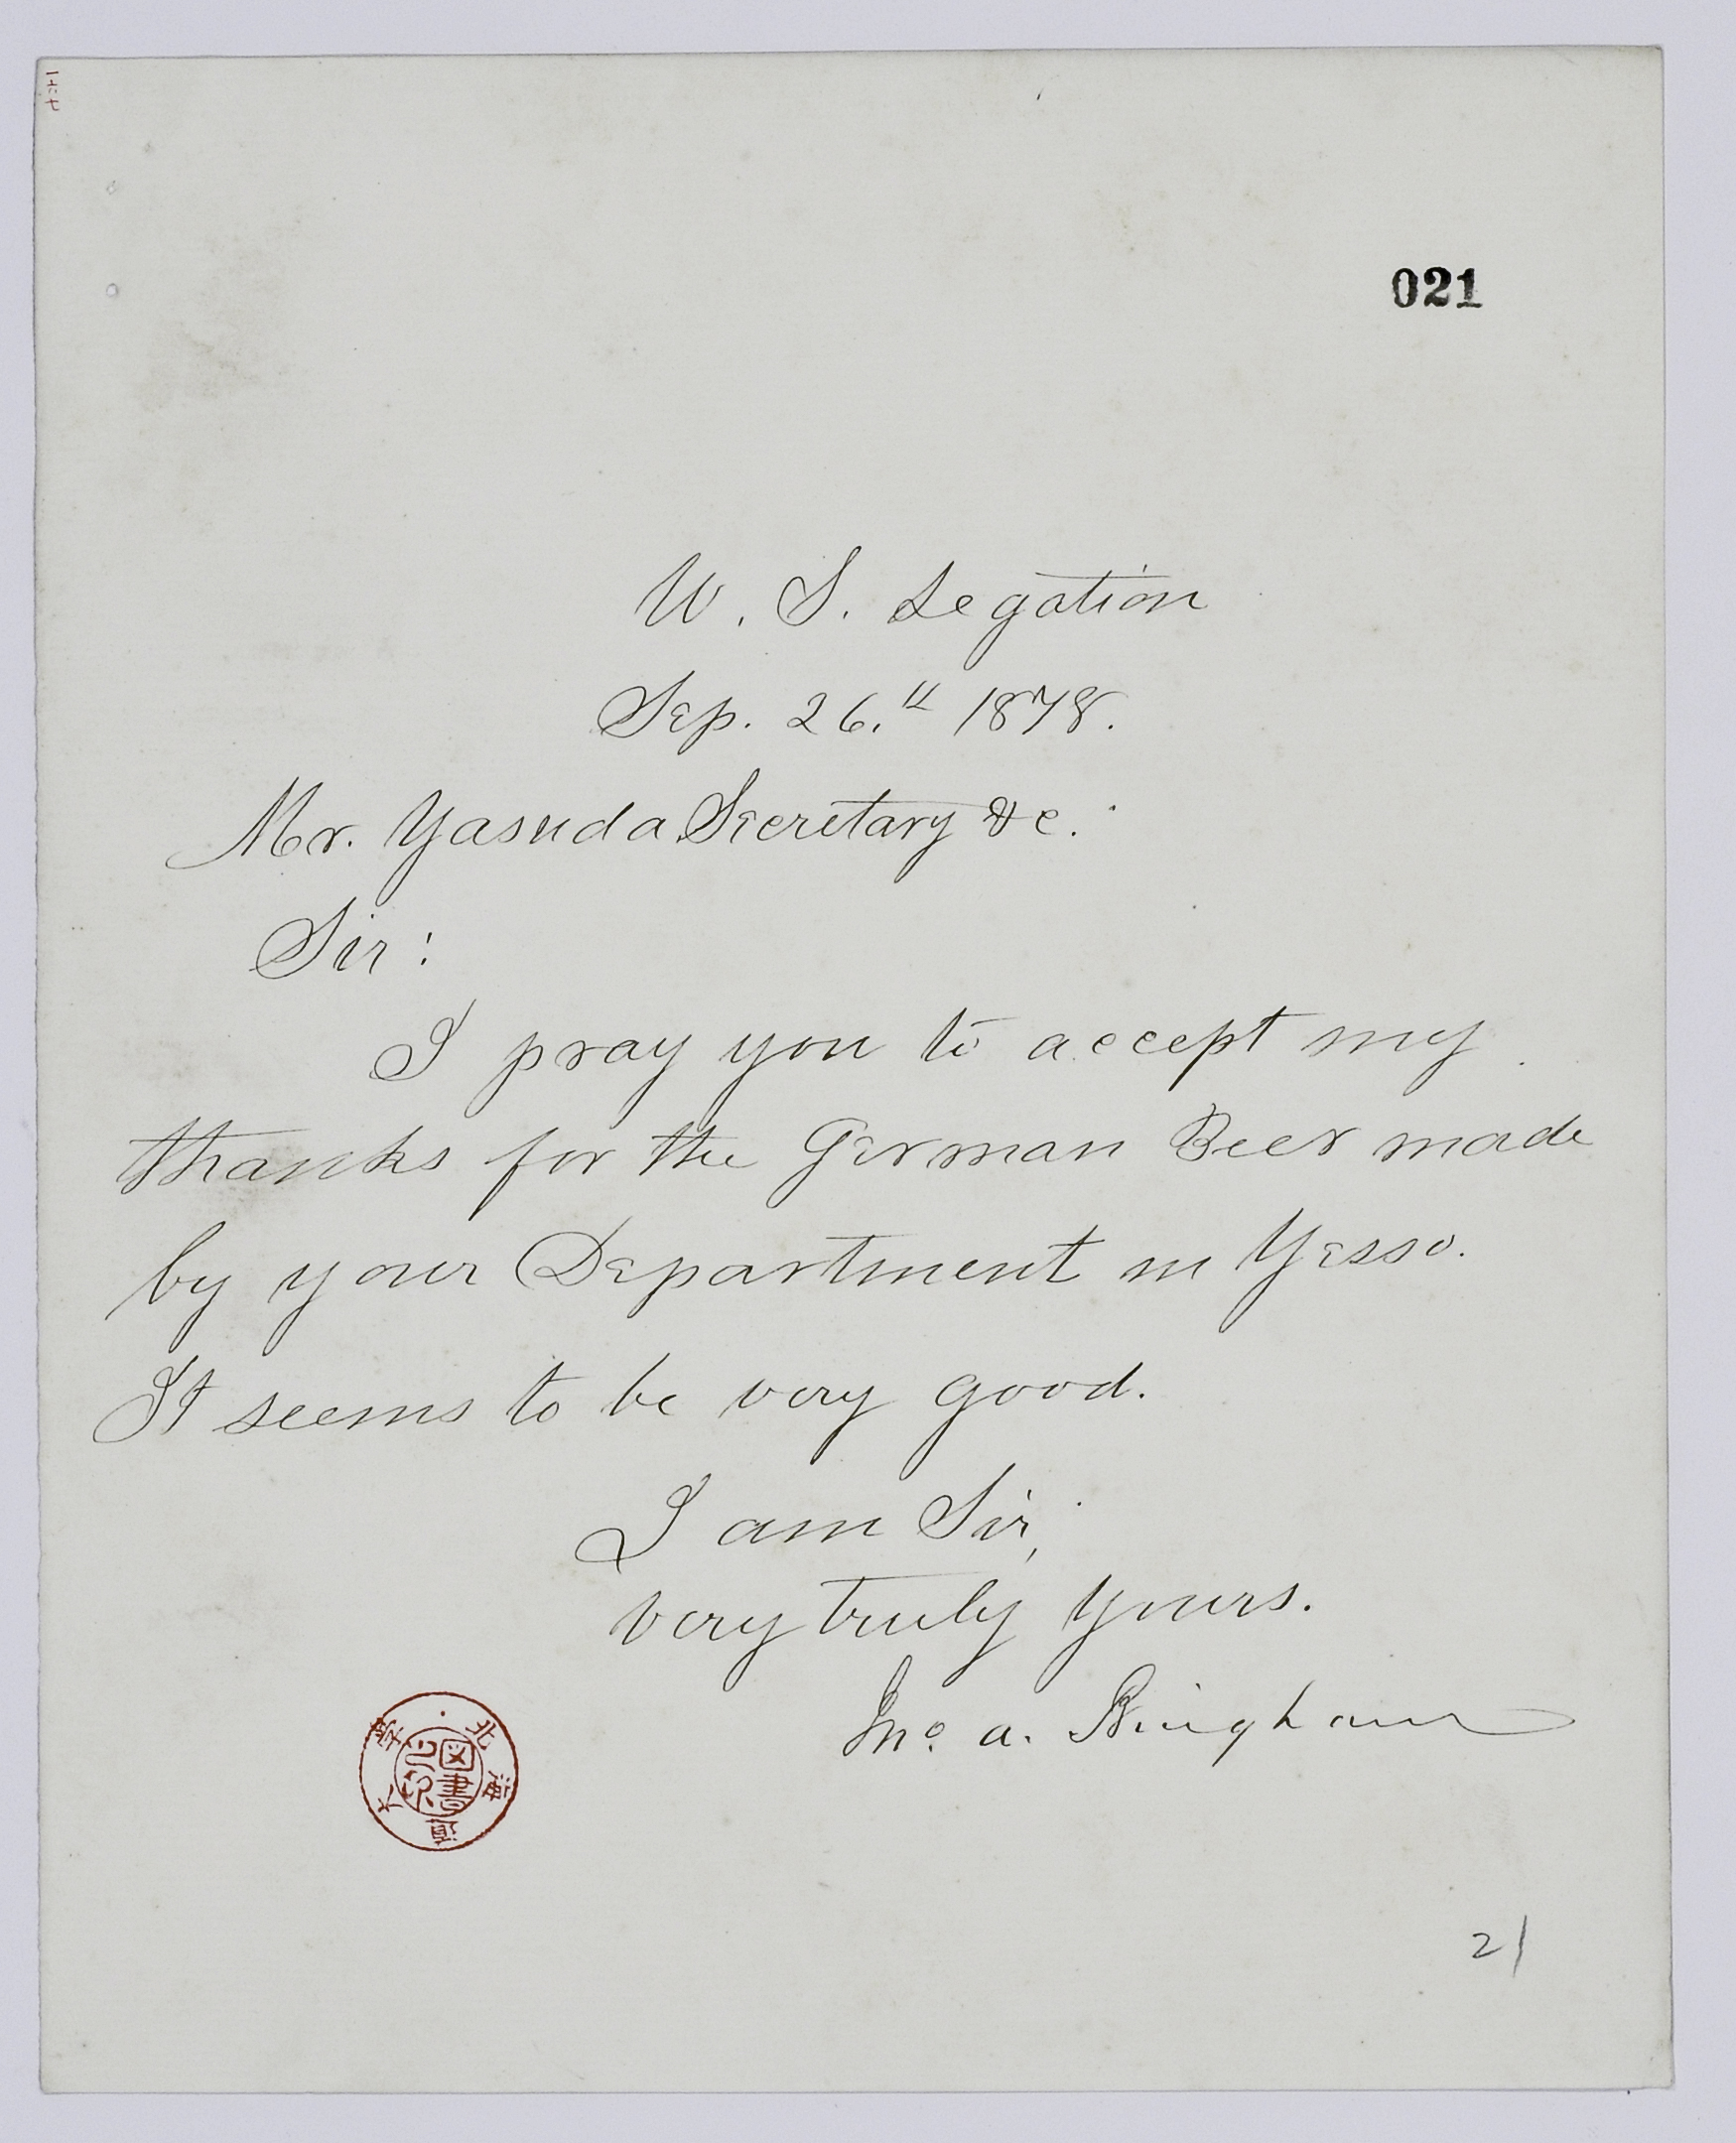 021
U. S. Legation
Sep. 26.th 1878.
Mr. Yasuda Secretary &c.
Sir:
I pray you to accept my
thanks for the German Beer made
by your Department in Yesso.
It seems to be very good.
I am Sir,
very truly yours.
Jno. A. Bingham
北海道大学
図書
21